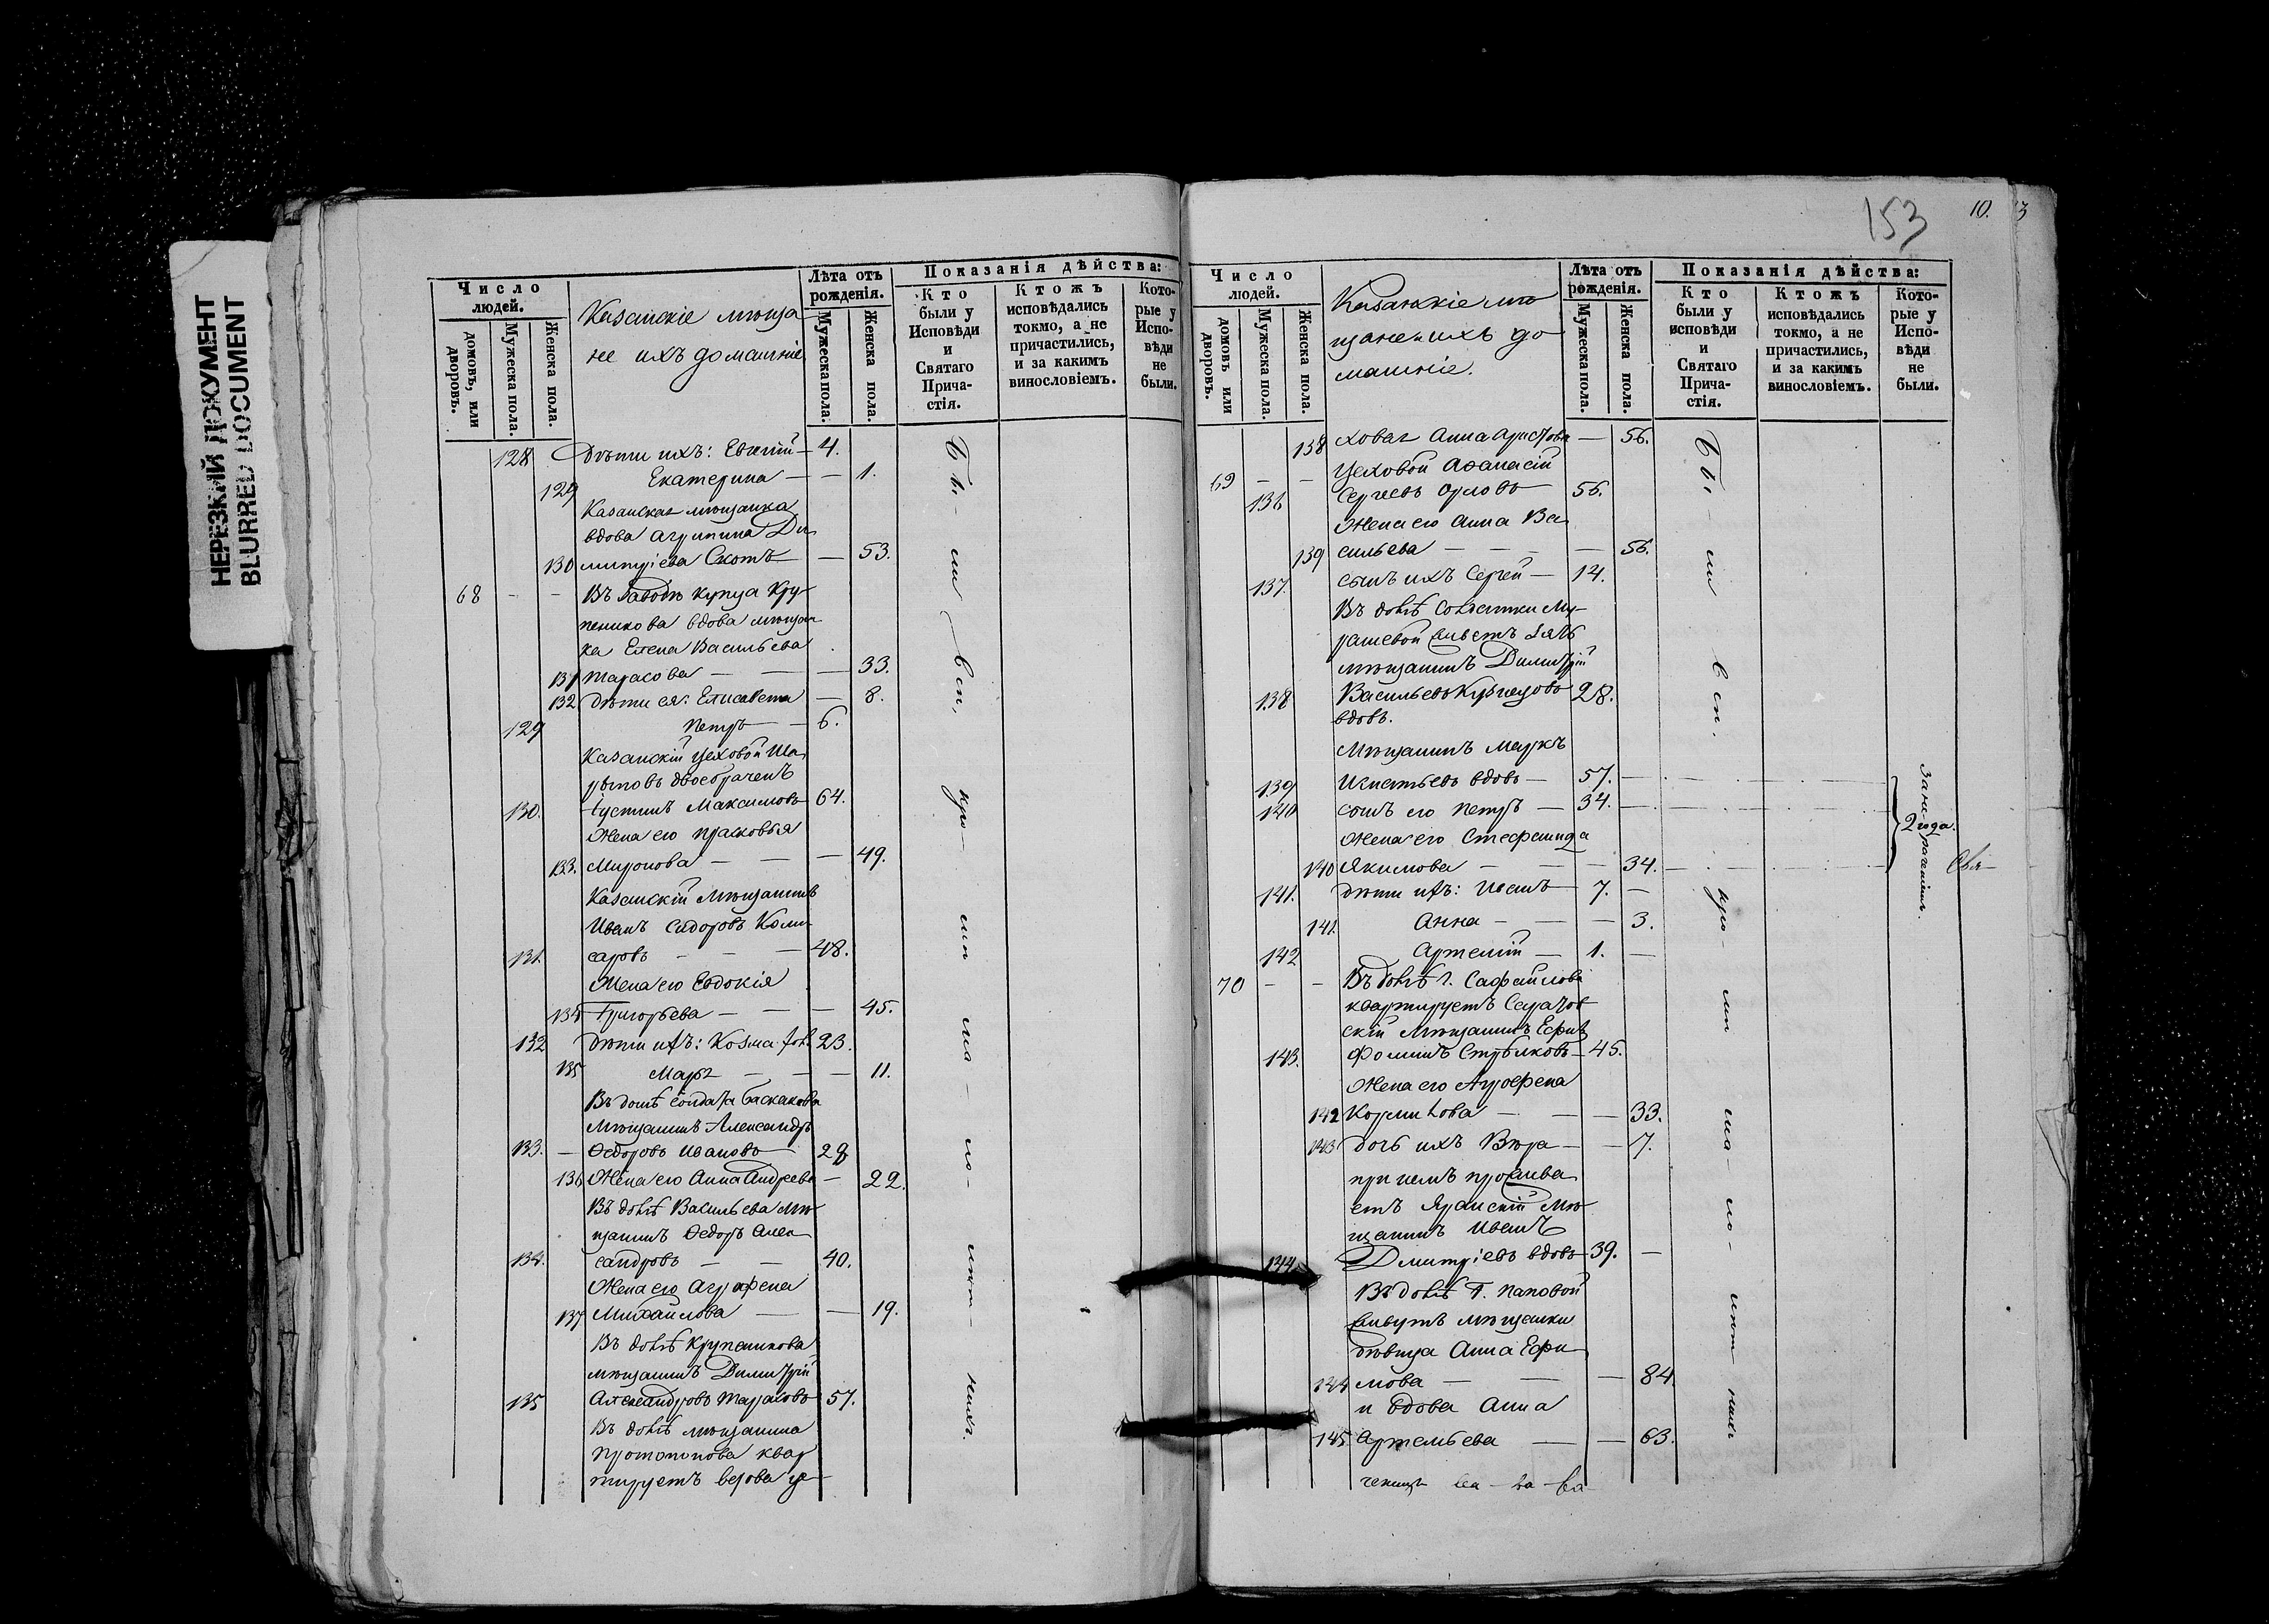 НЕРЕЗКИЙ ДОКУМЕНТ
BLURRED DOCUMENT
Число людей.
домовъ, или дворовъ.
Мужеска пола.
Женска пола.
Казанскіе мѣща
не ихъ домашніе
Лѣта отъ рожденія.
Мужеска пола.
Женска пола.
Показанія дѣйства:
Кто были у Исповѣди и Святаго Причастія.
Ктожъ исповѣдались токмо, а не причастились, и за какимъ винословіемъ.
Которые у Исповѣди не были.
128 Дѣти ихъ: Евѳимій — 4.
129 Екатерина — — 1.
Казанская мѣщанка
вдова Агрипина Ди
130 митріева Скотъ — — 53.
68 - - Въ заводѣ купца Кру
пеникова вдова мѣщан
ка Елена Васильева
131 Тарасова — — — 33.
132 Дѣти ея: Елисавета — 8.
129 Петръ — 6.
Казанскій цеховой Ша
двоебраченъ
130. Іустинъ Максимовъ 64.
Жена его Прасковья
133. Миронова — — — 49.
Казанскій мѣщанинъ
Иванъ Сидоровъ Коми
131. саровъ — — — 48.
Жена его Евдокія
134 Григорьева — — — 45.
132 Дѣти ихъ: Козма 23.
135 Марья — — — 11.
Въ домѣ солдата Баскакова
Мѣщанинъ Александръ
133. — Ѳедоровъ Ивановъ 28
136 Жена его Анна Андреева — 22.
Въ домѣ Васильева мѣ
щанинъ Ѳедоръ Алек
134. сандровъ — — 40.
Жена его Аграфена
137 Михайлова — — 19.
Въ домѣ Крупеникова
мѣщанинъ Димитрій
135 Александровъ Тарасовъ 57.
Въ домѣ мѣщанина
Протопопова квар
тируетъ вдова це
Бы - ли в сп, кро - ми ма - ло - лѣт - нихъ.
153
10. 13
Число людей.
домовъ или дворовъ.
Мужеска пола.
Женска пола.
Казанскіе мѣ
щане и ихъ до
машніе.
Лѣта отъ рожденія.
Мужеска пола.
Женска пола.
Показанія дѣйства:
Кто были у исповѣди и Святаго Причастія.
Ктожъ исповѣдались токмо, а не причастились, и за какимъ винословіемъ.
Которые у Исповѣди не были.
138 ховая Анна Аристова — 56.
69 - - Цеховой Аѳанасій
136 Сергеевъ Орловъ 56.
Жена его Анна Ва
139 сильева — — — — 56.
137. сынъ ихъ Сергей — 14.
Въ домѣ Солдатки Му
рашевой живетъ зять
мѣщанинъ Димитрій
138 Васильевъ Кузнецовъ 28.
вдовъ.
Мѣщанинъ Маркъ
139 Игнатьевъ вдовъ — 57.
140 сынъ его Петръ — 34.
Жена его Стефанида
140 Якимова — — — 34.
2 года.
141. Дѣти ихъ: Иванъ 7. —
141. Анна — — — 3.
142 Артемій — 1. —
70 - - Въ домѣ г. Сафайлова
квартируетъ Саратов
скій мѣщанинъ Ефимъ
143. Фоминъ Стрѣлковъ — 45.
Жена его Агрофена
142 Кормилова — — — 33.
143 дочь ихъ Вѣра — — 7.
при немъ прожива
етъ Яранскій мѣ
щанинъ Иванъ
144 Дмитріевъ вдовъ 39. —
Въ домѣ Г. Пановой
живутъ мѣщанки
дѣвица Анна Ефи
144 мова — — — 84.
и вдова Анна
145 Артемьева — — 63.
Бы - ли в сп. кро - ми ма - ло - лѣт нихъ
Свя-